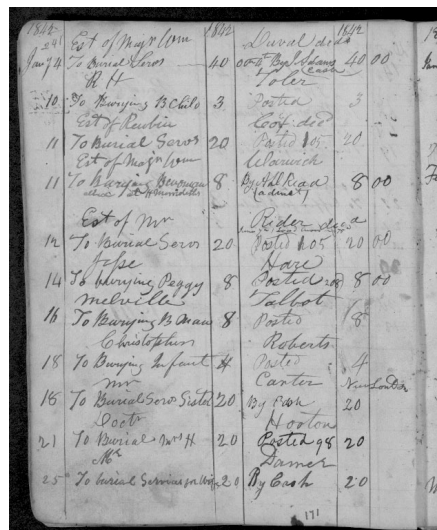 1842 1842 1842
24 Est of Majr Wm Duval decd
Jany 4 To Burial Servs 40 00 By Adams Cash 40 00
R H Toler
10 To Burying B Child 3 Posted 3
Est of Reubin Cox decd
11 To Burial Servs 20 Posted 105 20
Est of Majr Wm Warwick
11 To Burying B woman 8 By Abl Read 8 00
(adinet)
Est of Mr Rider decd
12 To Burial Servs 20 Posted 105 20 00
Jesse Hare
14 To burying Peggy 8 Posted 208 8 00
Melville Talbot
16 To Burying B Man 8 Posted 8
Christopher Roberts
18 To Burying Infant 4 Posted 4
Mr Carter New London
18 To Burial Servs Sister 20 By Cash 20
Doctr Horton
21 To Burial Mrs H 20 Posted 98 20
Mr Damer
25 To burial Service for Wife 20 By Cash 20
171